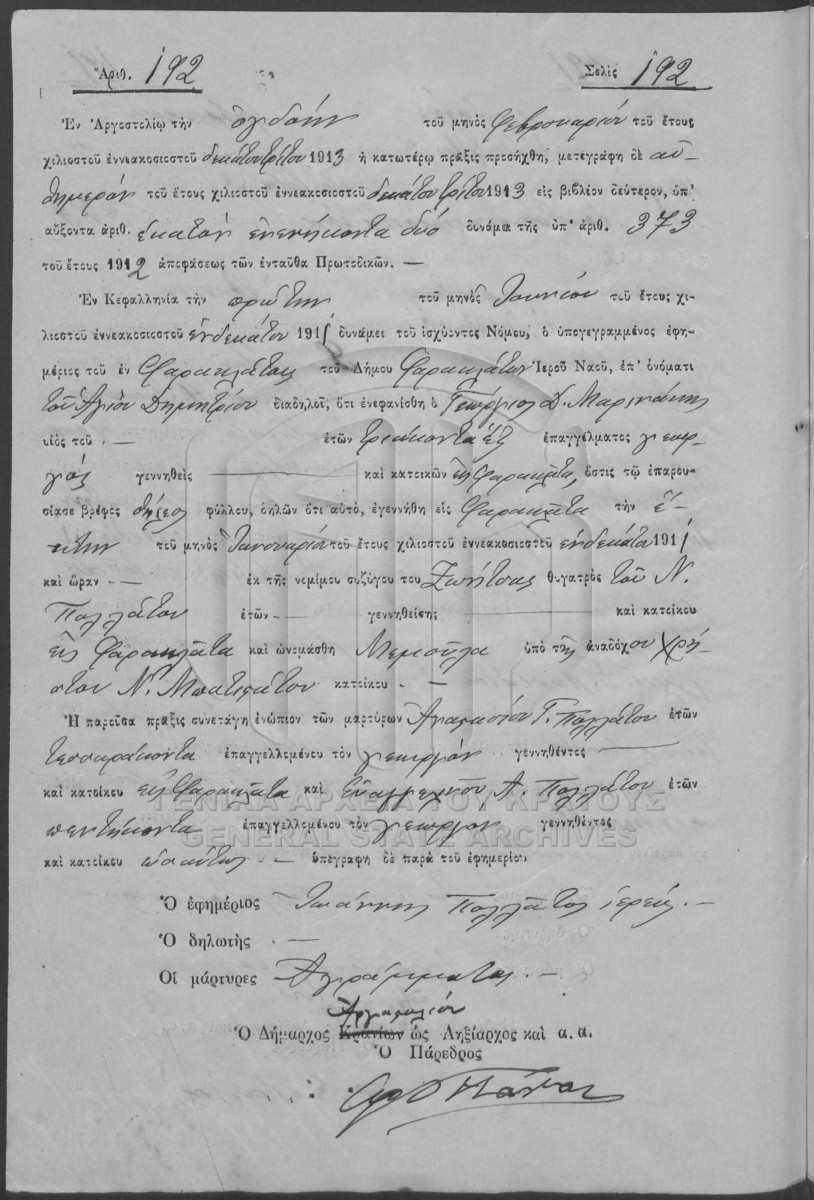 Ἀριθ. 192 Σελὶς 192
Ἐν Ἀργοστολίῳ τὴν ὀγδόην τοῦ μηνὸς Φεβρουαρίου τοῦ ἔτους
χιλιοστοῦ ἐννεακοσιοστοῦ δεκάτου τρίτου 1913 ἡ κατωτέρω πρᾶξις προσήχθη, μετεγράφη δὲ αὐ-
θημερὸν τοῦ ἔτους χιλιοστοῦ ἐννεακοσιοστοῦ δεκάτου τρίτου 1913 εἰς βιβλίον δεύτερον, ὑπ'
αὔξοντα ἀριθ. ἑκατὸν ἐνενήκοντα δύο δυνάμει τῆς ὑπ' ἀριθ. 373
τοῦ ἔτους 1912 ἀποφάσεως τῶν ἐνταῦθα Πρωτοδικῶν. —
Ἐν Κεφαλληνίᾳ τὴν πρώτην τοῦ μηνὸς Ἰουνίου τοῦ ἔτους χι-
λιοστοῦ ἐννεακοσιοστοῦ ἑνδεκάτου 1911 δυνάμει τοῦ ἰσχύοντος Νόμου, ὁ ὑπογεγραμμένος ἐφη-
μέριος τοῦ ἐν Φαρακλάτοις τοῦ Δήμου Φαρακλάτων Ἱεροῦ Ναοῦ, ἐπ' ὀνόματι
τοῦ Ἁγίου Δημητρίου διαδηλοῖ, ὅτι ἐνεφανίσθη ὁ Γεώργιος Δ. Μαρινάκης
υἱὸς τοῦ . — ἐτῶν τριάκοντα ἓξ ἐπαγγέλματος γεωρ-
γὸς γεννηθεὶς — καὶ κατοικῶν εἰς Φαρακλᾶτα, ὅστις τῷ ἐπαρου-
σίασε βρέφος θῆλεος φύλλου, δηλῶν ὅτι αὐτό, ἐγεννήθη εἰς Φαρακλᾶτα τὴν ἕ-
κτην τοῦ μηνὸς Ἰανουαρίου τοῦ ἔτους χιλιοστοῦ ἐννεακοσιοστοῦ ἑνδεκάτου 1911
καὶ ὥραν — ἐκ τῆς νομίμου συζύγου του Ζωήτσας θυγατρὸς τοῦ Ν.
Πολλάτου ἐτῶν — γεννηθείσης — καὶ κατοίκου
εἰς Φαρακλᾶτα καὶ ὠνομάσθη Μεμούλα ὑπὸ τῆς ἀναδόχου Χρή-
στου κατοίκου . —
Ἡ παροῦσα πρᾶξις συνετάγη ἐνώπιον τῶν μαρτύρων Ἀναστασίου Γ. Πολλάτου ἐτῶν
τεσσαράκοντα ἐπαγγελλομένου τὸν γεωργὸν γεννηθέντος —
καὶ κατοίκου εἰς Φαρακλᾶτα καὶ Εὐαγγελινοῦ Α. Πολλάτου ἐτῶν
πεντήκοντα ἐπαγγελλομένου τὸν γεωργὸν γεννηθέντος
καὶ κατοίκου ὡσαύτως . — ὑπεγράφη δὲ παρὰ τοῦ ἐφημερίου
Ὁ ἐφημέριος Ἰωάννης Πολλάτος ἱερεύς. —
Ὁ δηλωτὴς . —
Οἱ μάρτυρες Ἀγράμματοι . —
Ἀργοστολίου
Ὁ Δήμαρχος Κρανίων ὡς Ληξίαρχος καὶ α. α.
Ὁ Πάρεδρος
ΓΕΝΙΚΑ ΑΡΧΕΙΑ ΤΟΥ ΚΡΑΤΟΥΣ
GENERAL STATE ARCHIVES